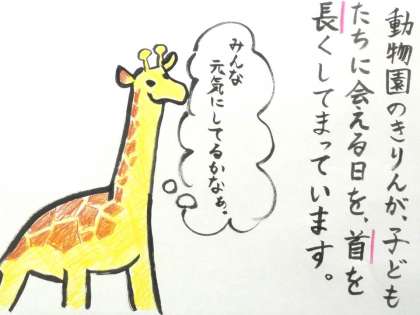 動物園のきりんが、子ども
たちに会える日を、首を
長くしてまっています。
みんな
元気にしてるかなぁ。